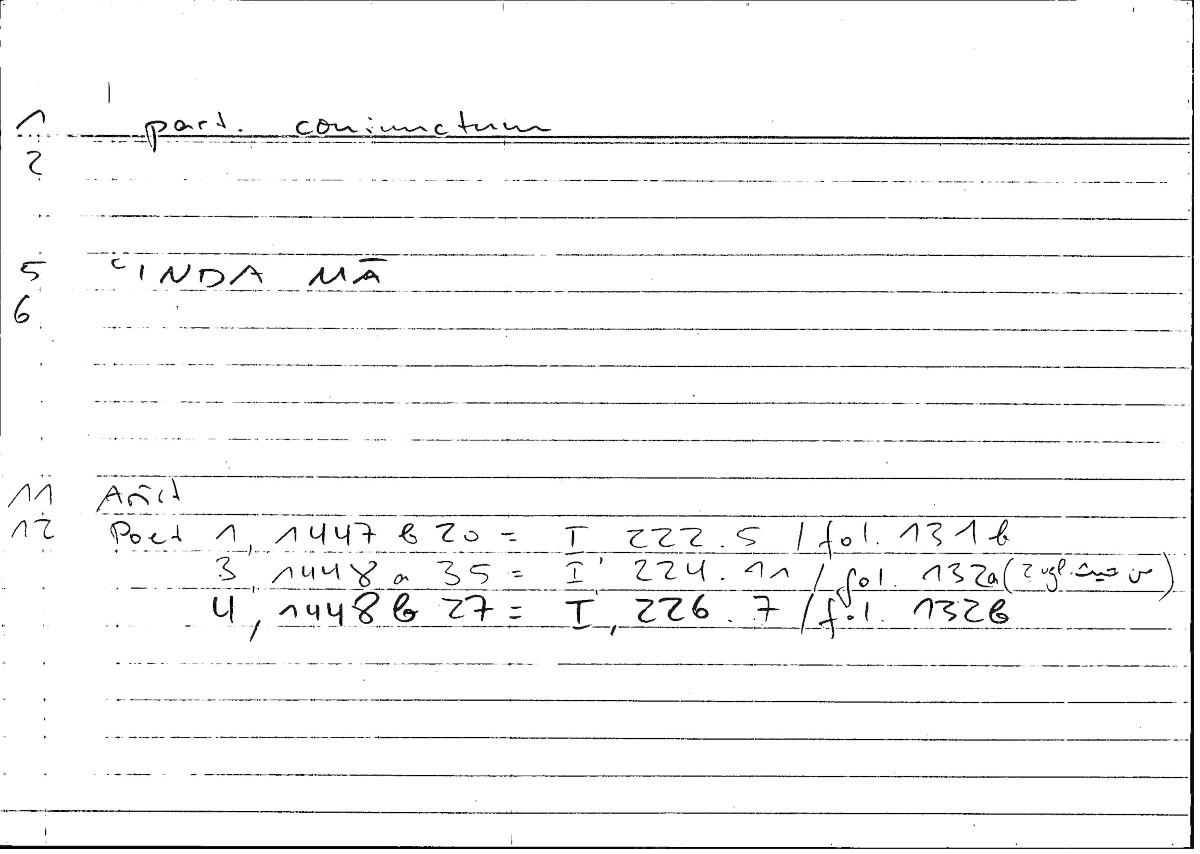 1 part. coniunctum
2
5 ʿINDA MĀ
6
11 Arist
12 Poet 1, 1447 b 20 = I 222.5 / fol. 131b
3, 1448 a 35 = I, 224.11 / fol. 132a (zugl. حيث
4, 1448 b 27 = I, 226.7 / fol. 132b